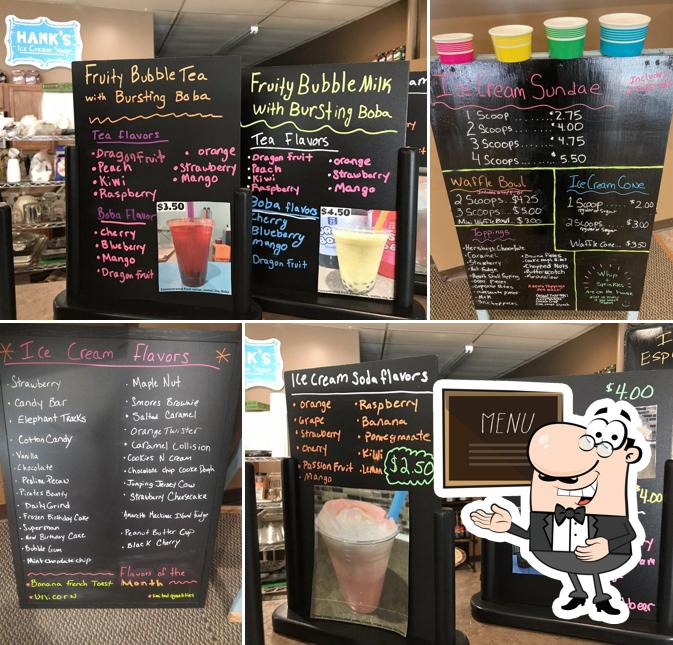 HANK'S
Ice Cream Shop
Fruity Bubble Tea
with Bursting Boba
Tea flavors
• Dragonfruit
• Peach
• Kiwi
• Raspberry
• orange
• Strawberry
• Mango
Boba Flavor
• cherry
• Blueberry
• Mango
• Dragon fruit
$3.50
Fruity Bubble Milk
with Bursting Boba
Tea Flavors
• Dragon fruit
• Peach
• Kiwi
• Raspberry
• orange
• Strawberry
• Mango
Boba flavors
Cherry
Blueberry
mango
Dragon fruit
$4.50
Ice Cream Sundae
Includes
1 Scoop........$2.75
2 Scoops.....$4.00
3 Scoops.....$4.75
4 Scoops.....$5.50
Waffle Bowl
2 Scoops..$4.25
3 Scoops..$5.00
Mini Waffle Bowl..$3.00
Ice Cream Cone
1 Scoop......$2.00
regular or sugar
2 scoops...$3.00
regular or sugar
Waffle Cone...$3.50
Toppings
• Caramel
• Strawberry
• Hot Fudge
• Brownie Pieces
• Chopped Nuts
• Butterscotch
• Marshmallow
Whip
+
Sprinkles
Are on the house
Ice Cream Flavors
• Strawberry
• Candy Bar
• Elephant Tracks
• Cotton Candy
• Vanilla
• Chocolate
• Praline Pecan
• Pirates Bounty
• Daily Grind
• Frozen Birthday Cake
• Superman
• Bubble Gum
• Mint chocolate chip
• Maple Nut
• Smores Brownie
• Salted Caramel
• Orange Twister
• Caramel Collision
• Cookies N Cream
• Chocolate chip Cookie Dough
• Jumping Jersey Cow
• Strawberry Cheesecake
• Amaretto Mackinac Island Fudge
• Peanut Butter Cup
• Black Cherry
Flavors of the
Month
• Banana french Toast
• Unicorn
* limited quantities
K'S
Ice Cream Soda flavors
• orange
• Grape
• Strawberry
• Cherry
• Passion Fruit
• Mango
• Raspberry
• Banana
• Pomegranate
• Kiwi
• Lemon
$2.50
MENU
Esp
$4.00
$4.00
beer